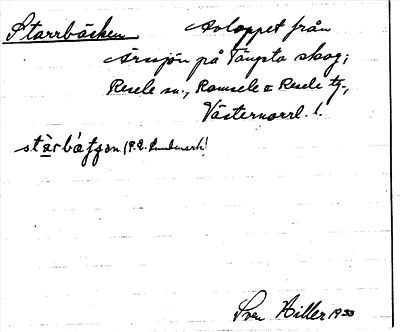 Starrbäcken Avloppet från
Årssjön på Tängsta skog;
Resele sn., Ramsele o Resele tg.,
Västernorrl. l.
stàrbátjan (P.E. Lundmark)
Sven Hiller 1933